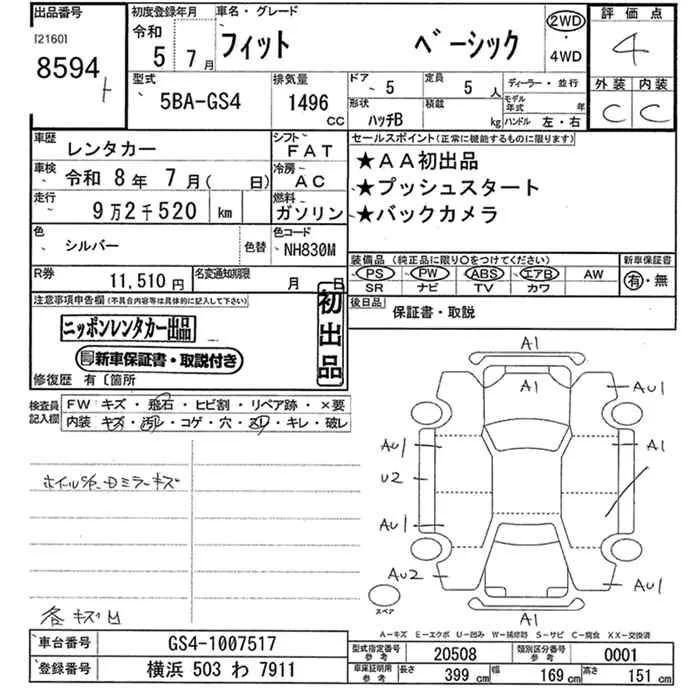 出品番号 初度登録年月 車名・グレード 2WD 評価点
[2160] 令和 5 年 7 月 フィット ベーシック ・ 4WD 4
8594
型式 排気量 ドア 5 定員 5 人 ディーラー・並行 外装 内装
5BA-GS4 1496 CC 形状 ハッチB 積載 kg モデル年式 年 ハンドル 左・右 C C
車歴 レンタカー シフト FAT セールスポイント(正常に機能するものに限ります)
車検 令和 8 年 7 月( 日) 冷房 AC ★AA初出品
走行 9万2千520 km 燃料 ガソリン ★プッシュスタート
★バックカメラ
色 シルバー 色替 色コード NH830M
装備品(純正品に限り〇をつけてください) 新車保証書
PS PW ABS エアB AW 有・無
SR ナビ TV カワ
R券 11,510円 名変通知期限 月 日
後日品 保証書・取説
注意事項申告欄(不具合内容等は具体的に記入して下さい) 初出品
ニッポンレンタカー出品
新車保証書・取説付き
修復歴 有〔箇所
検査員記入欄 FW キズ・飛石・ヒビ割・リペア跡・×要
内装 キズ・汚レ・コゲ・穴・スリ・キレ・破レ
A1
A1 AU1
AU1 A1
U2
AU1
AU2 A1
スペア
A1
ホイルS/C、Dミラーキズ
各キズ凹
A-キズ E-エクボ U-凹み W-補修跡 S-サビ C-腐食 XX-交換済
車台番号 GS4-1007517 型式指定番号 参考 20508 類別区分番号 参考 0001
登録番号 横浜 503 わ 7911 車庫証明用 参考 長さ 399 cm 幅 169 cm 高さ 151 cm